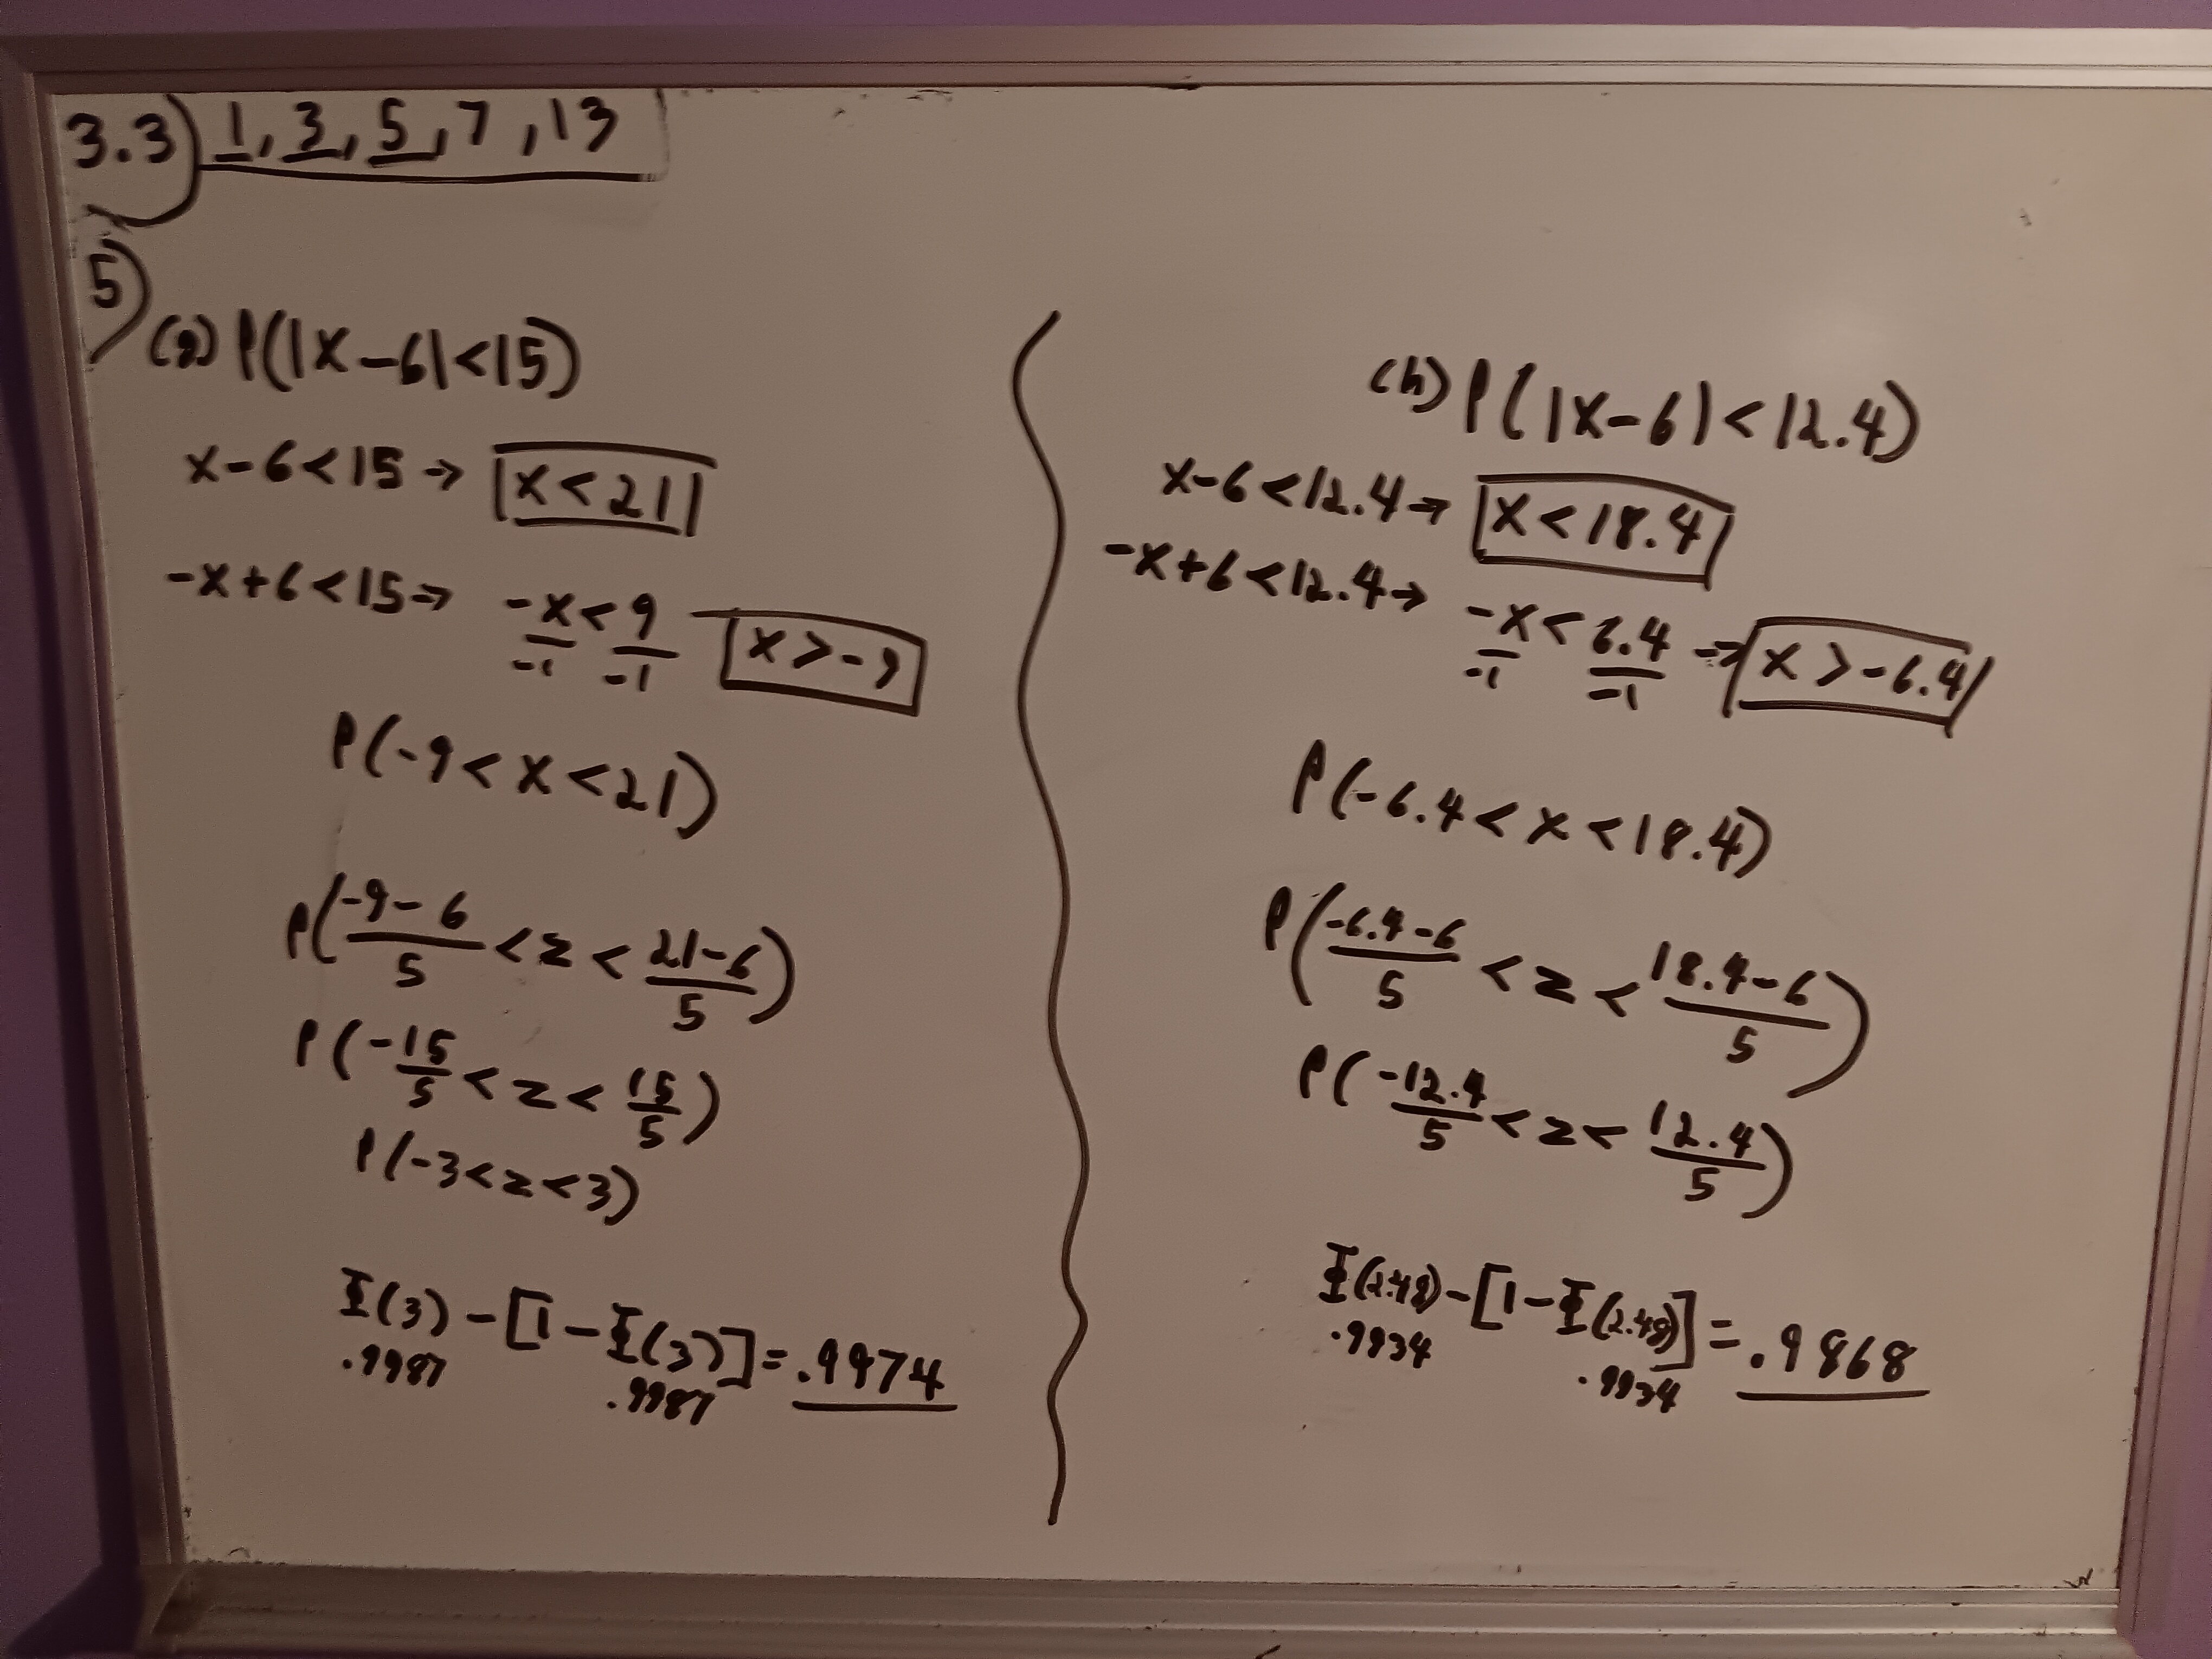 3.3) 1, 3, 5, 7, 13
5)
(a) P(|X-6|<15)
x-6<15 → x<21
-x+6<15 → -x/-1 < 9/-1 x>-9
P(-9<x<21)
P(-9-6/5 <z< 21-6/5)
P(-15/5 <z< 15/5)
P(-3<z<3)
Φ(3) - [1-Φ(3)] = .9974
.9987 .9987
(h) P(|X-6|<12.4)
x-6<12.4 → x<18.4
-x+6<12.4 → -x/-1 < 6.4/-1 → x>-6.4
P(-6.4<x<18.4)
P(-6.4-6/5 <z< 18.4-6/5)
P(-12.4/5 <z< 12.4/5)
Φ(2.48) - [1-Φ(2.48)] = .9868
.9934 .9934